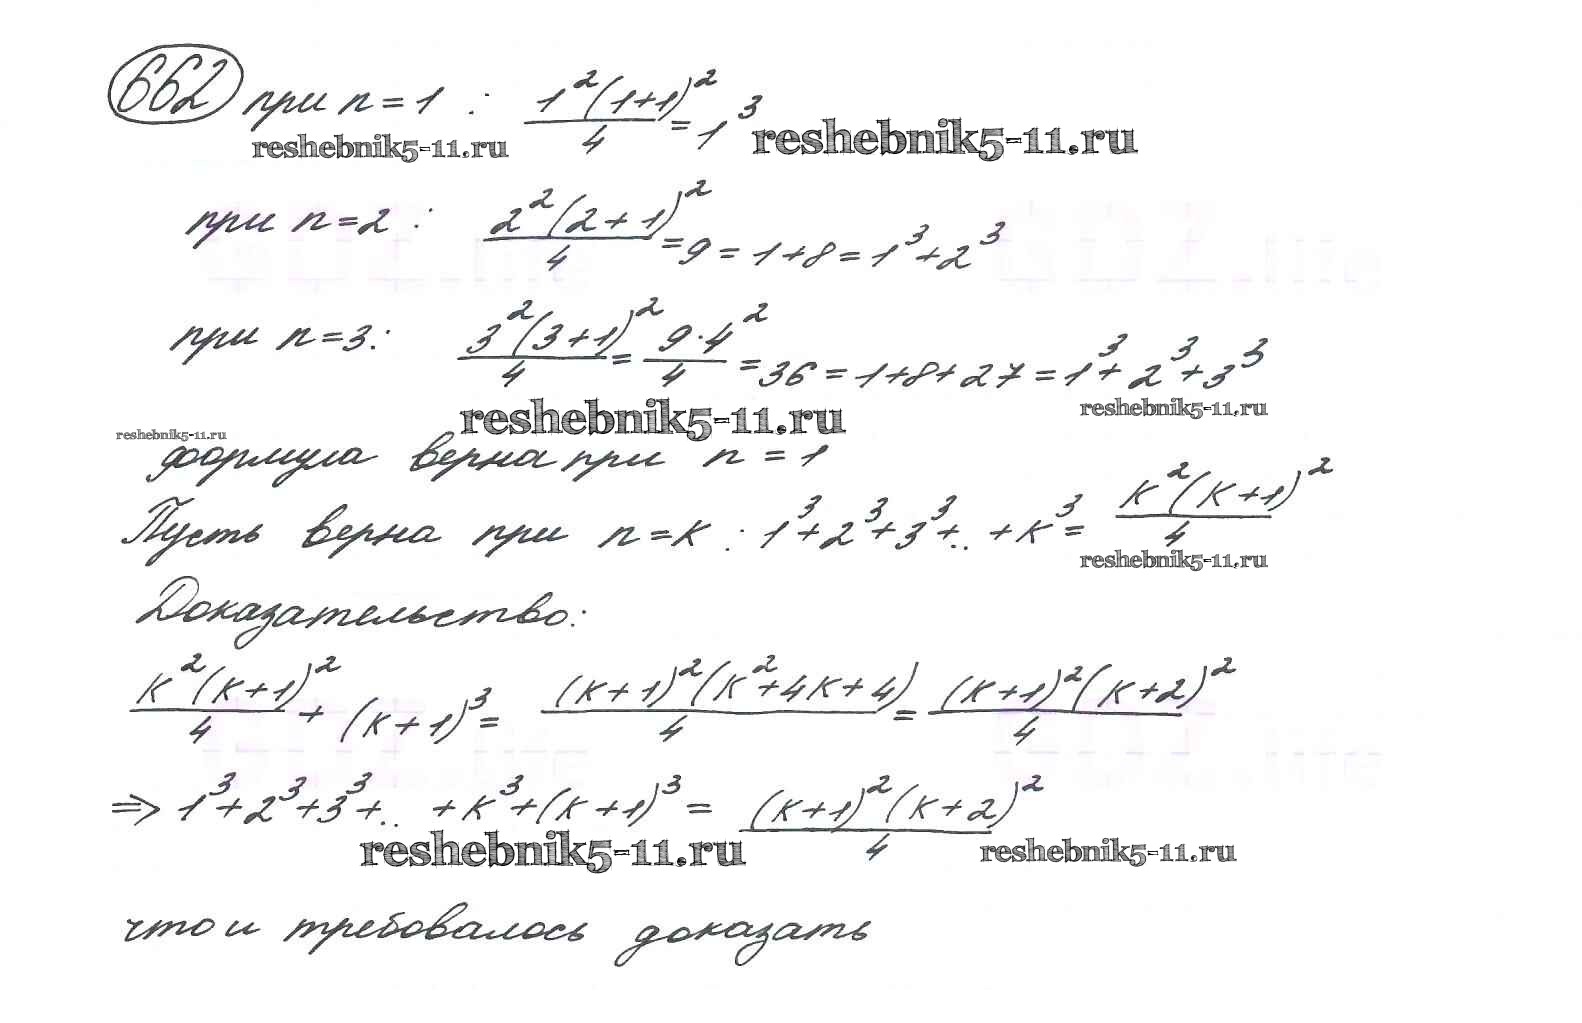 662 при n=1 : 1²(1+1)²/4 = 1³
reshebnik5-11.ru reshebnik5-11.ru
при n=2 : 2²(2+1)²/4 = 9 = 1+8 = 1³+2³
при n=3: 3²(3+1)²/4 = 9·4²/4 = 36 = 1+8+27 = 1³+2³+3³
reshebnik5-11.ru reshebnik5-11.ru
reshebnik5-11.ru
формула верна при n = 1
Пусть верна при n=к : 1³+2³+3³+..+к³= к²(к+1)²/4
reshebnik5-11.ru
Доказательство:
к²(к+1)²/4 + (к+1)³ = (к+1)²(к²+4к+4)/4 = (к+1)²(к+2)²/4
⇒ 1³+2³+3³+..+к³+(к+1)³ = (к+1)²(к+2)²/4
reshebnik5-11.ru reshebnik5-11.ru
что и требовалось доказать